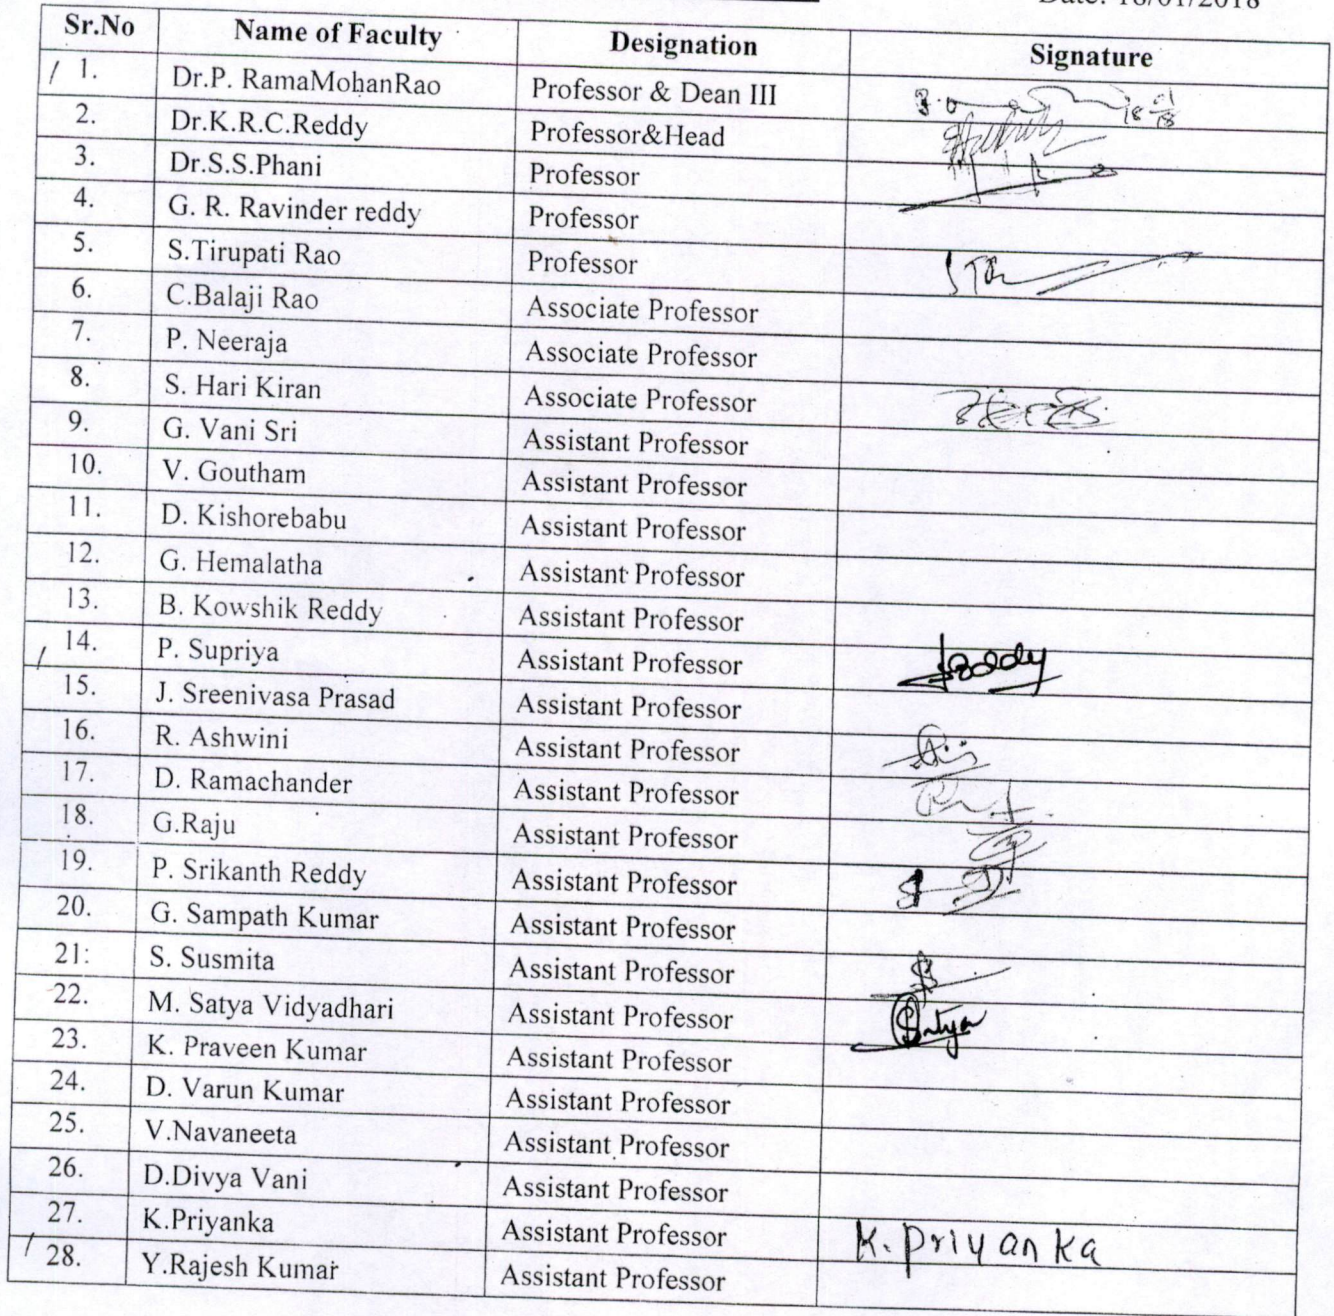 Date: 18/01/2018
Sr.No Name of Faculty Designation Signature
1. Dr.P. RamaMohanRao Professor & Dean III
2. Dr.K.R.C.Reddy Professor&Head
3. Dr.S.S.Phani Professor
4. G. R. Ravinder reddy Professor
5. S.Tirupati Rao Professor
6. C.Balaji Rao Associate Professor
7. P. Neeraja Associate Professor
8. S. Hari Kiran Associate Professor
9. G. Vani Sri Assistant Professor
10. V. Goutham Assistant Professor
11. D. Kishorebabu Assistant Professor
12. G. Hemalatha Assistant Professor
13. B. Kowshik Reddy Assistant Professor
14. P. Supriya Assistant Professor
15. J. Sreenivasa Prasad Assistant Professor
16. R. Ashwini Assistant Professor
17. D. Ramachander Assistant Professor
18. G.Raju Assistant Professor
19. P. Srikanth Reddy Assistant Professor
20. G. Sampath Kumar Assistant Professor
21: S. Susmita Assistant Professor
22. M. Satya Vidyadhari Assistant Professor Satya
23. K. Praveen Kumar Assistant Professor
24. D. Varun Kumar Assistant Professor
25. V.Navaneeta Assistant Professor
26. D.Divya Vani Assistant Professor
27. K.Priyanka Assistant Professor K. Priyanka
28. Y.Rajesh Kumar Assistant Professor